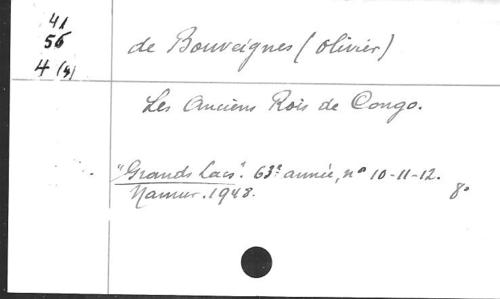 41
56
4 (5)
de Bouveignes (Olivier)
Les Anciens Rois de Congo.
"Grands Lacs". 63e année, no 10-11-12.
Namur. 1948. 8o